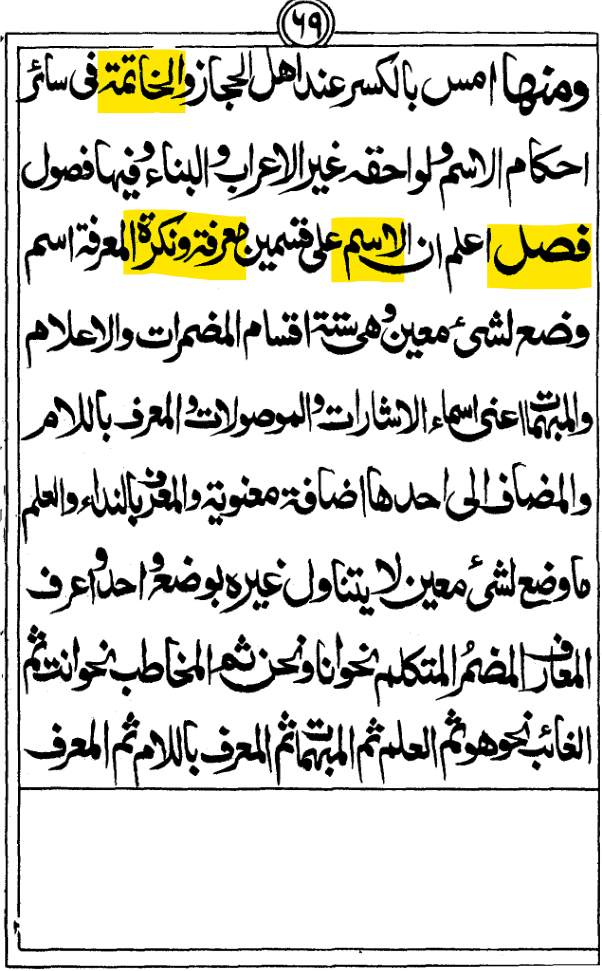 ٦٩
ومنها امس بالكسر عند اهل الحجاز والخاتمة فى سائر
احكام الاسم ولواحقه غير الاعراب والبناء وفيها فصول
فصل اعلم ان الاسم على قسمين معرفة ونكرة المعرفة اسم
وضع لشئ معين وهى ستة اقسام المضمرات والاعلام
والمبهمات اعنى اسماء الاشارات والموصولات والمعرف باللام
والمضاف الى احدها اضافة معنوية والمعرف بالنداء والعلم
ما وضع لشئ معين لا يتناول غيره بوضع واحد واعرف
المعارف المضمُر المتكلم نحو انا ونحن ثم المخاطب نحو انت ثم
الغائب نحو هو ثم العلم ثم المبهمات ثم المعرف باللام ثم المعرف